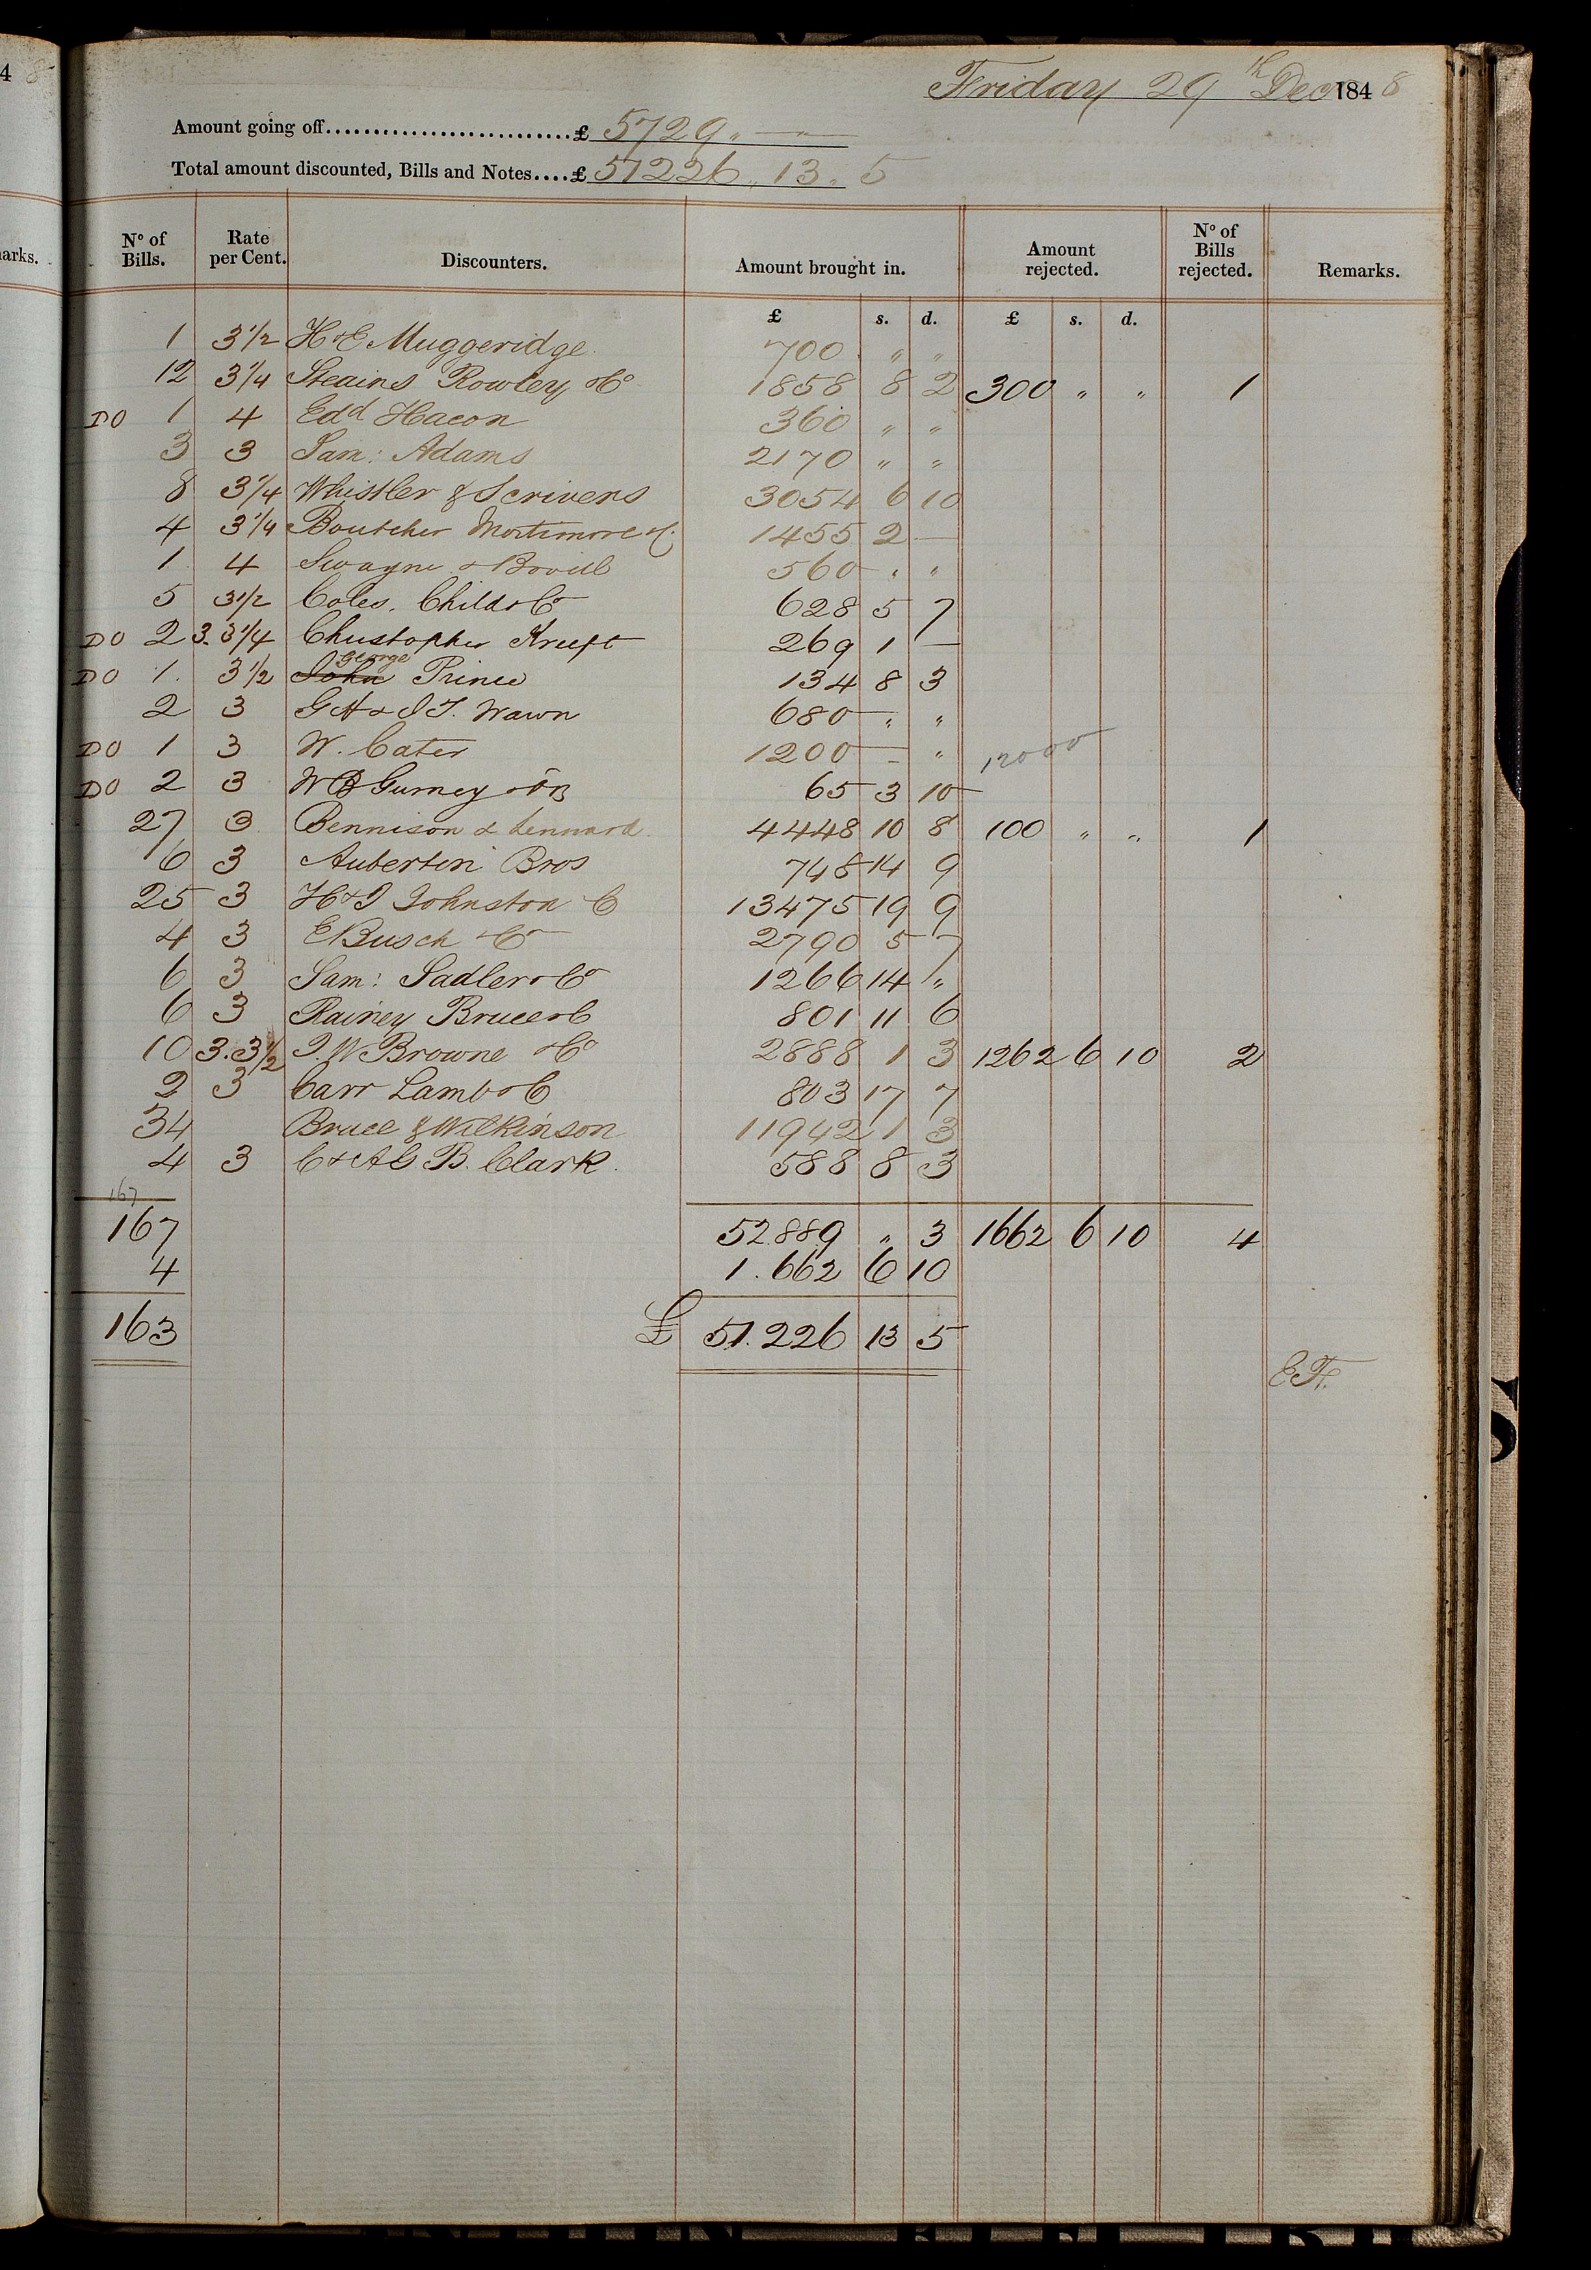 4 8
arks.
Friday 29th Decr 1848
Amount going off..........................£ 5729 „ —„—
Total amount discounted, Bills and Notes....£ 51226 „ 13 „ 5
No of Bills. Rate per Cent. Discounters. Amount brought in. Amount rejected. No of Bills rejected. Remarks.
£ s. d. £ s. d.
1 3 1/2 H & E Muggeridge 700 „ „
12 3 1/4 Steains Rowley & Co 1858 8 2 300 „ „ 1
DO 1 4 Edd Hacon 360 „ „
3 3 Sam: Adams 2170 „ „
8 3 1/4 Whistler & Scrivens 3054 6 10
4 3 1/4 Boutcher Mortimore & C. 1455 2 —
1 4 Swayne & Bovill 560 „ „
5 3 1/2 Coles, Child & Co 628 5 7
DO 2 3. 3 1/4 Christopher Kreeft 269 1 —
George
DO 1. 3 1/2 John Prince 134 8 3
2 3 G H & J T. Wawn 680 „ „
DO 1 3 W. Cater 1200 — „ 12000
DO 2 3 W B Gurney 65 3 10
27 3 Bennison & Lennard 4448 10 8 100 „ „ 1
6 3 Auberton Bros 748 14 9
25 3 H & J Johnston & C 13475 19 9
4 3 E Busch & Co 2790 5 7
6 3 Sam: Sadler & Co 1266 14 „
6 3 Rainey Bruce & C 801 11 6
10 3. 3 1/2 J. W Browne & Co 2888 1 3 1262 6 10 2
2 3 Carr Lamb & C 803 17 7
34 Bruce & Wilkinson 11942 1 3
4 3 C & A G B. Clark. 588 8 3
167
167 52.889 „ 3 1662 6 10 4
4 1.662 6 10
163 £ 51.226 13 5